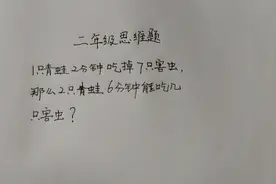 二年级思维题
1只青蛙2分钟吃掉7只害虫,
那么2只青蛙6分钟能吃几
只害虫?